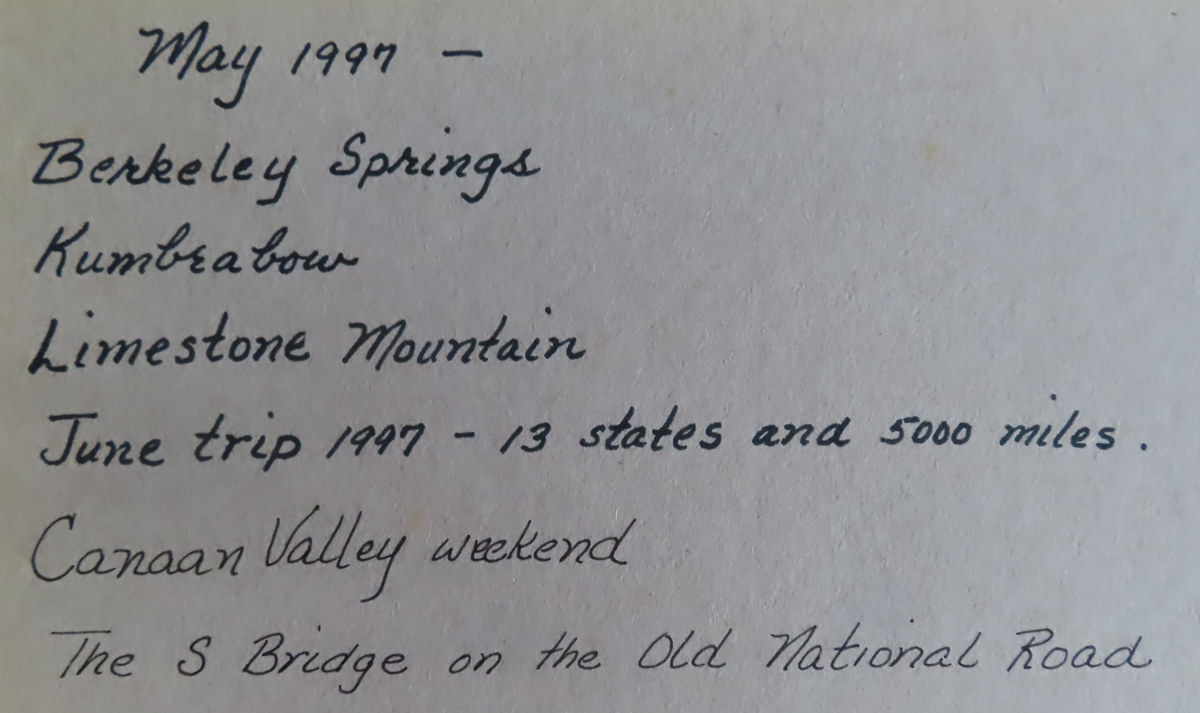 May 1997 –
Berkeley Springs
Kumbrabow
Limestone Mountain
June trip 1997 - 13 states and 5000 miles.
Canaan Valley weekend
The S Bridge on the Old National Road